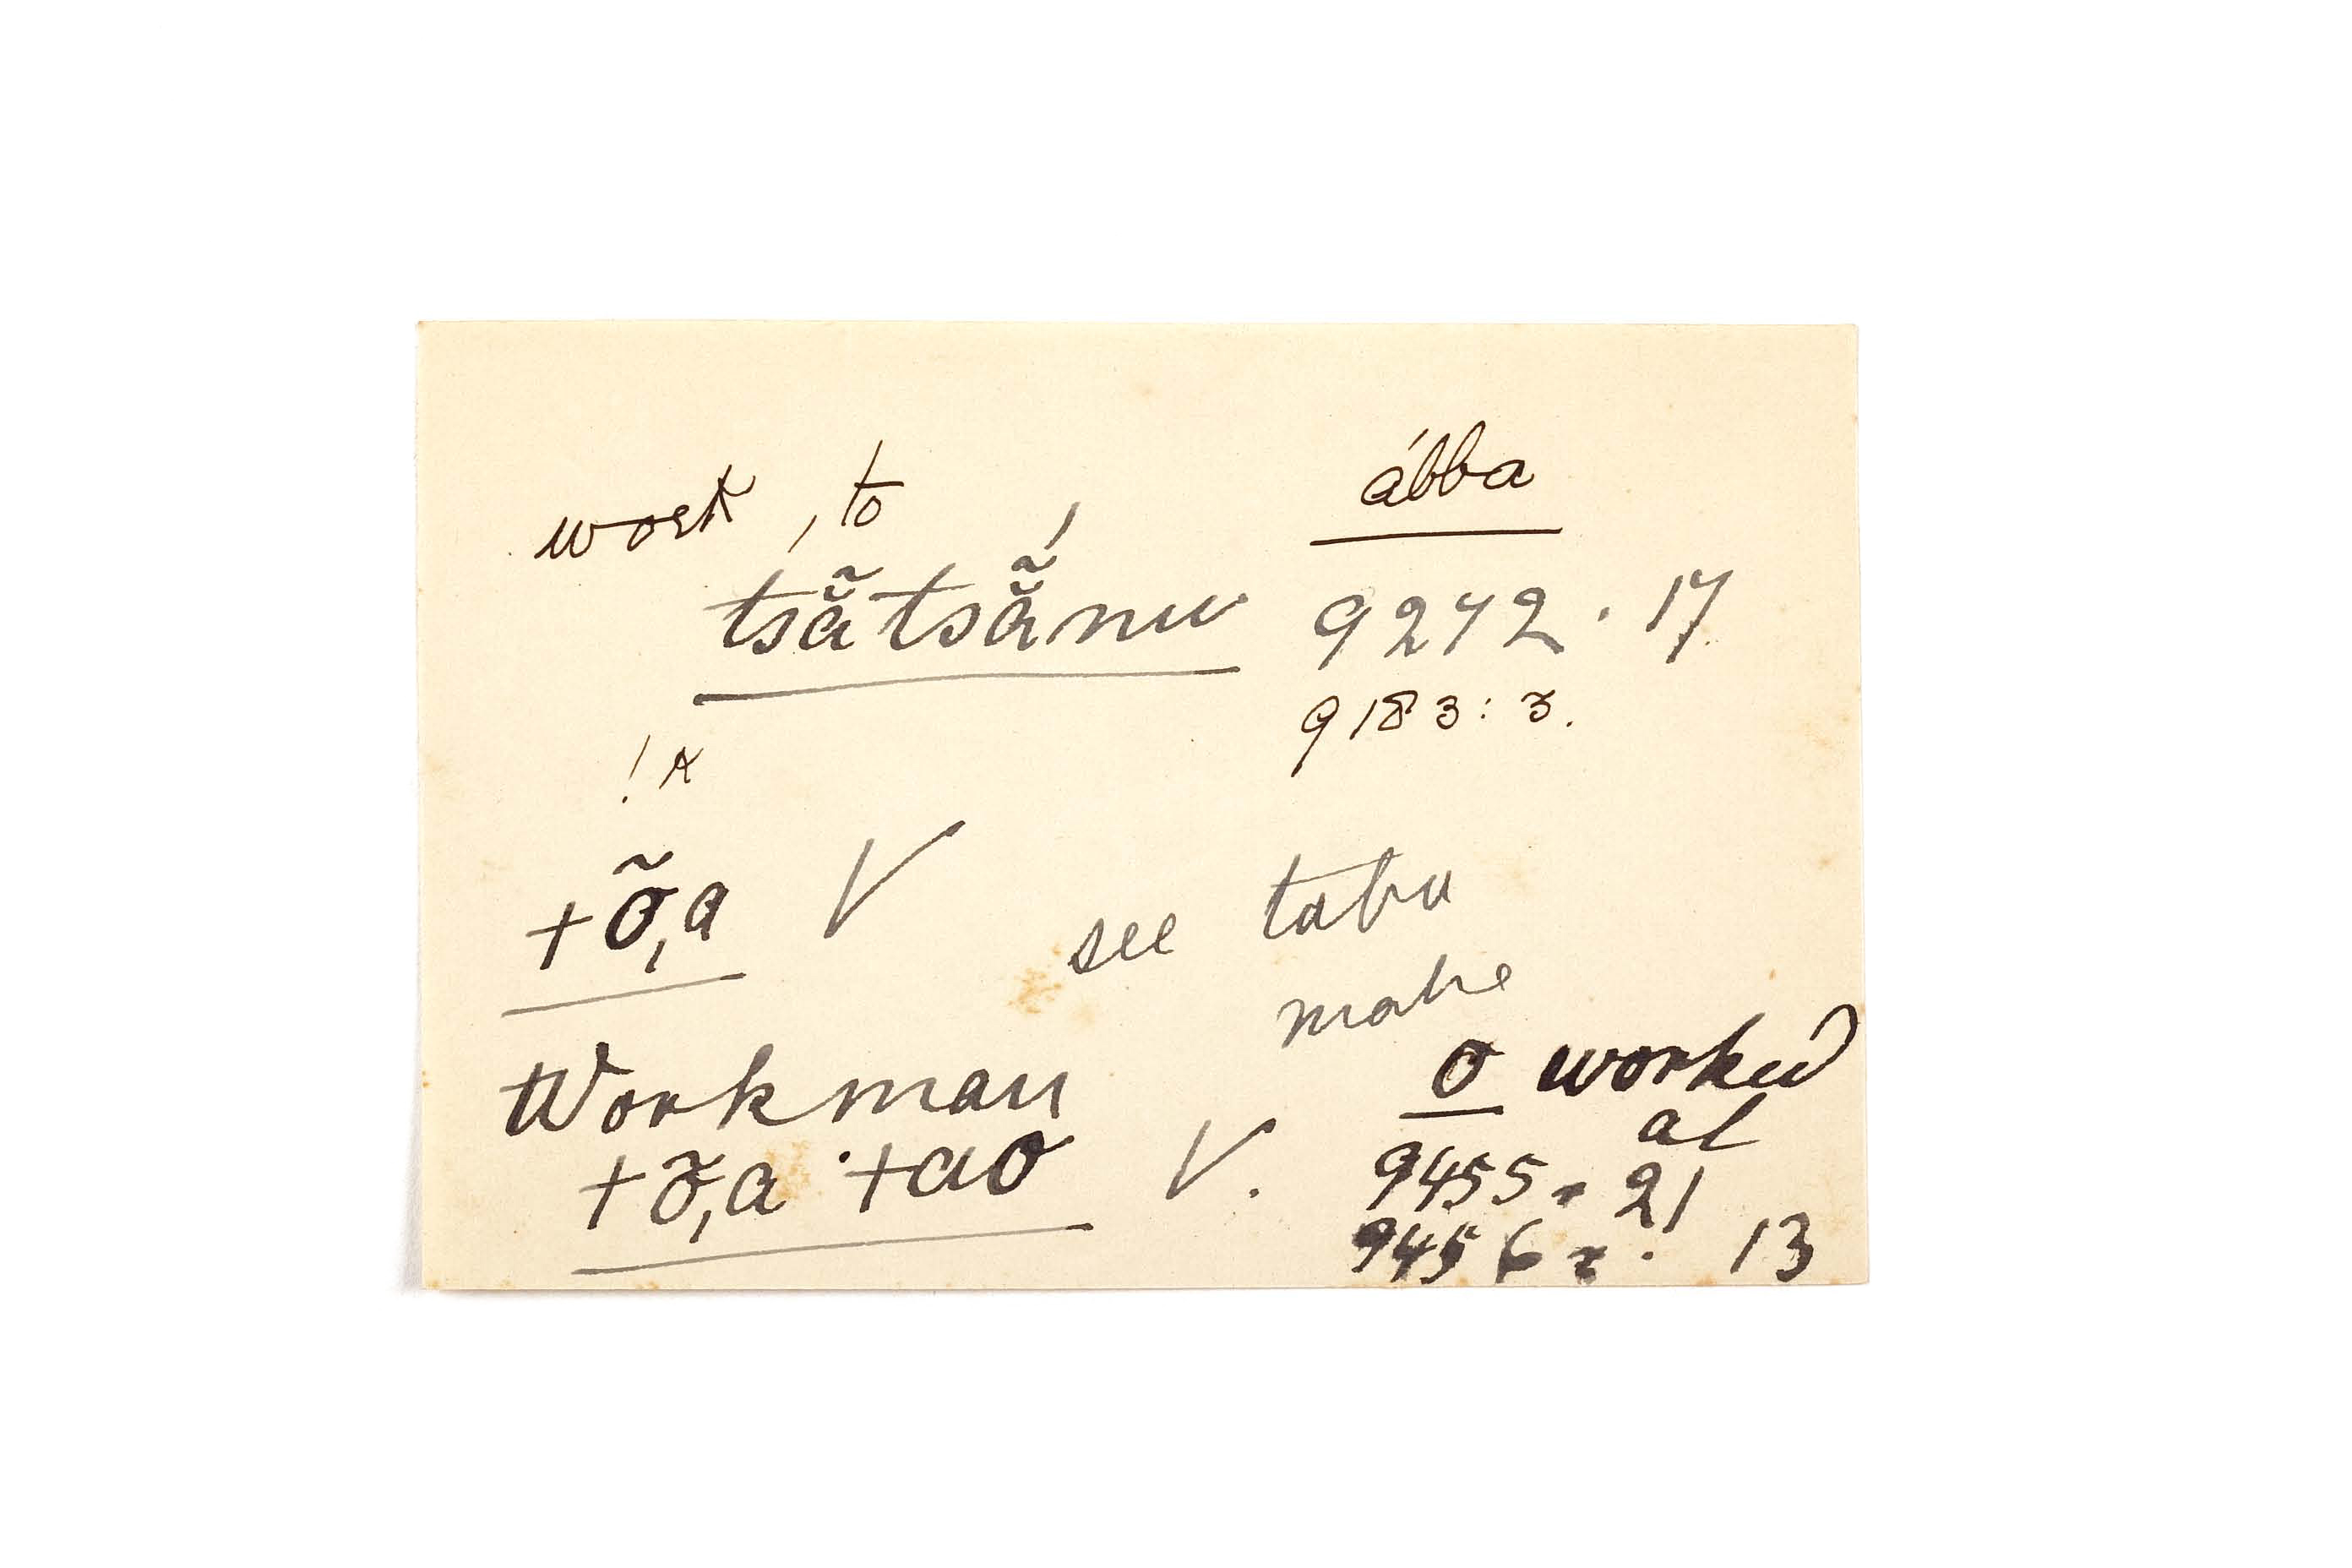 work, to ábba
tsā̃tsā̃́nu 9272.17
9183:3.
!k
+õ,a V see tabu
make
Workman o worked
al
+õ,a +ao V. 9455.21
9456. 13